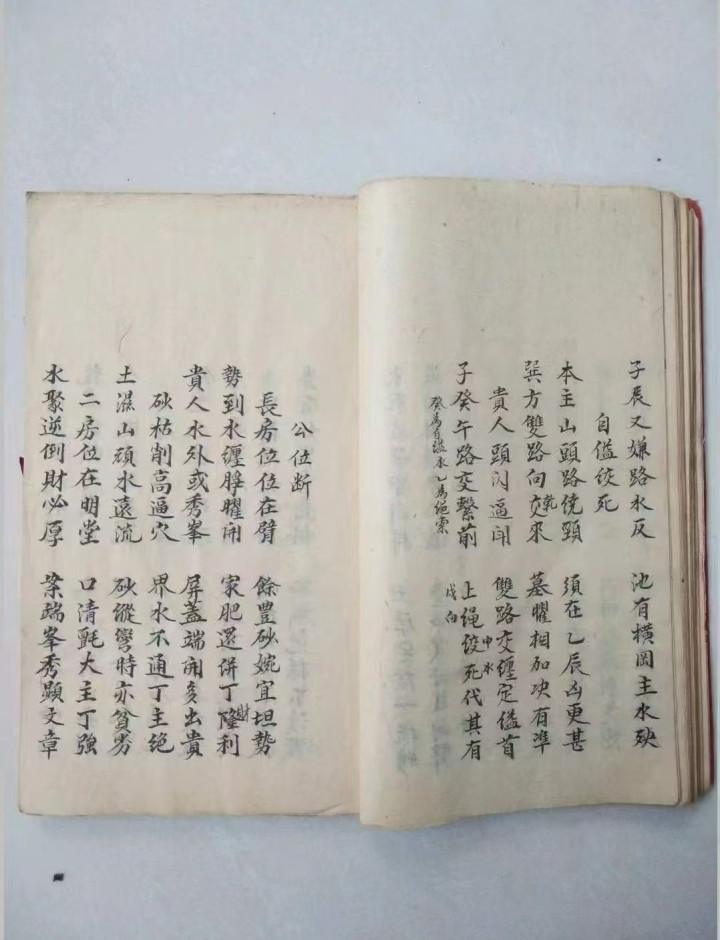 子辰又嫌路水反　池有橫岡主水殃
自縊絞死
本主山頭路繞頸　須在乙辰凶更甚
巽方雙路向乾交來　墓曜相加决有準
貴人頭閃逼開　雙路交纏定縊首
子癸午路交繫前　上繩絞死代其有
癸為自溢水乙為繩索　申水戌向
公位断
長房位位在臂　餘豊砂婉宜坦勢
勢到水纏脖曜開　家肥還併丁財隆利
貴人水外或秀峯　屏蓋端開多出貴
砂枯削高逼穴　界水不通丁主絶
土滋山頭水遠流　砂縱彎時亦貧労
二房位在明堂　口清氈大主丁強
水聚逆倒財必厚　案端峯秀顯文章